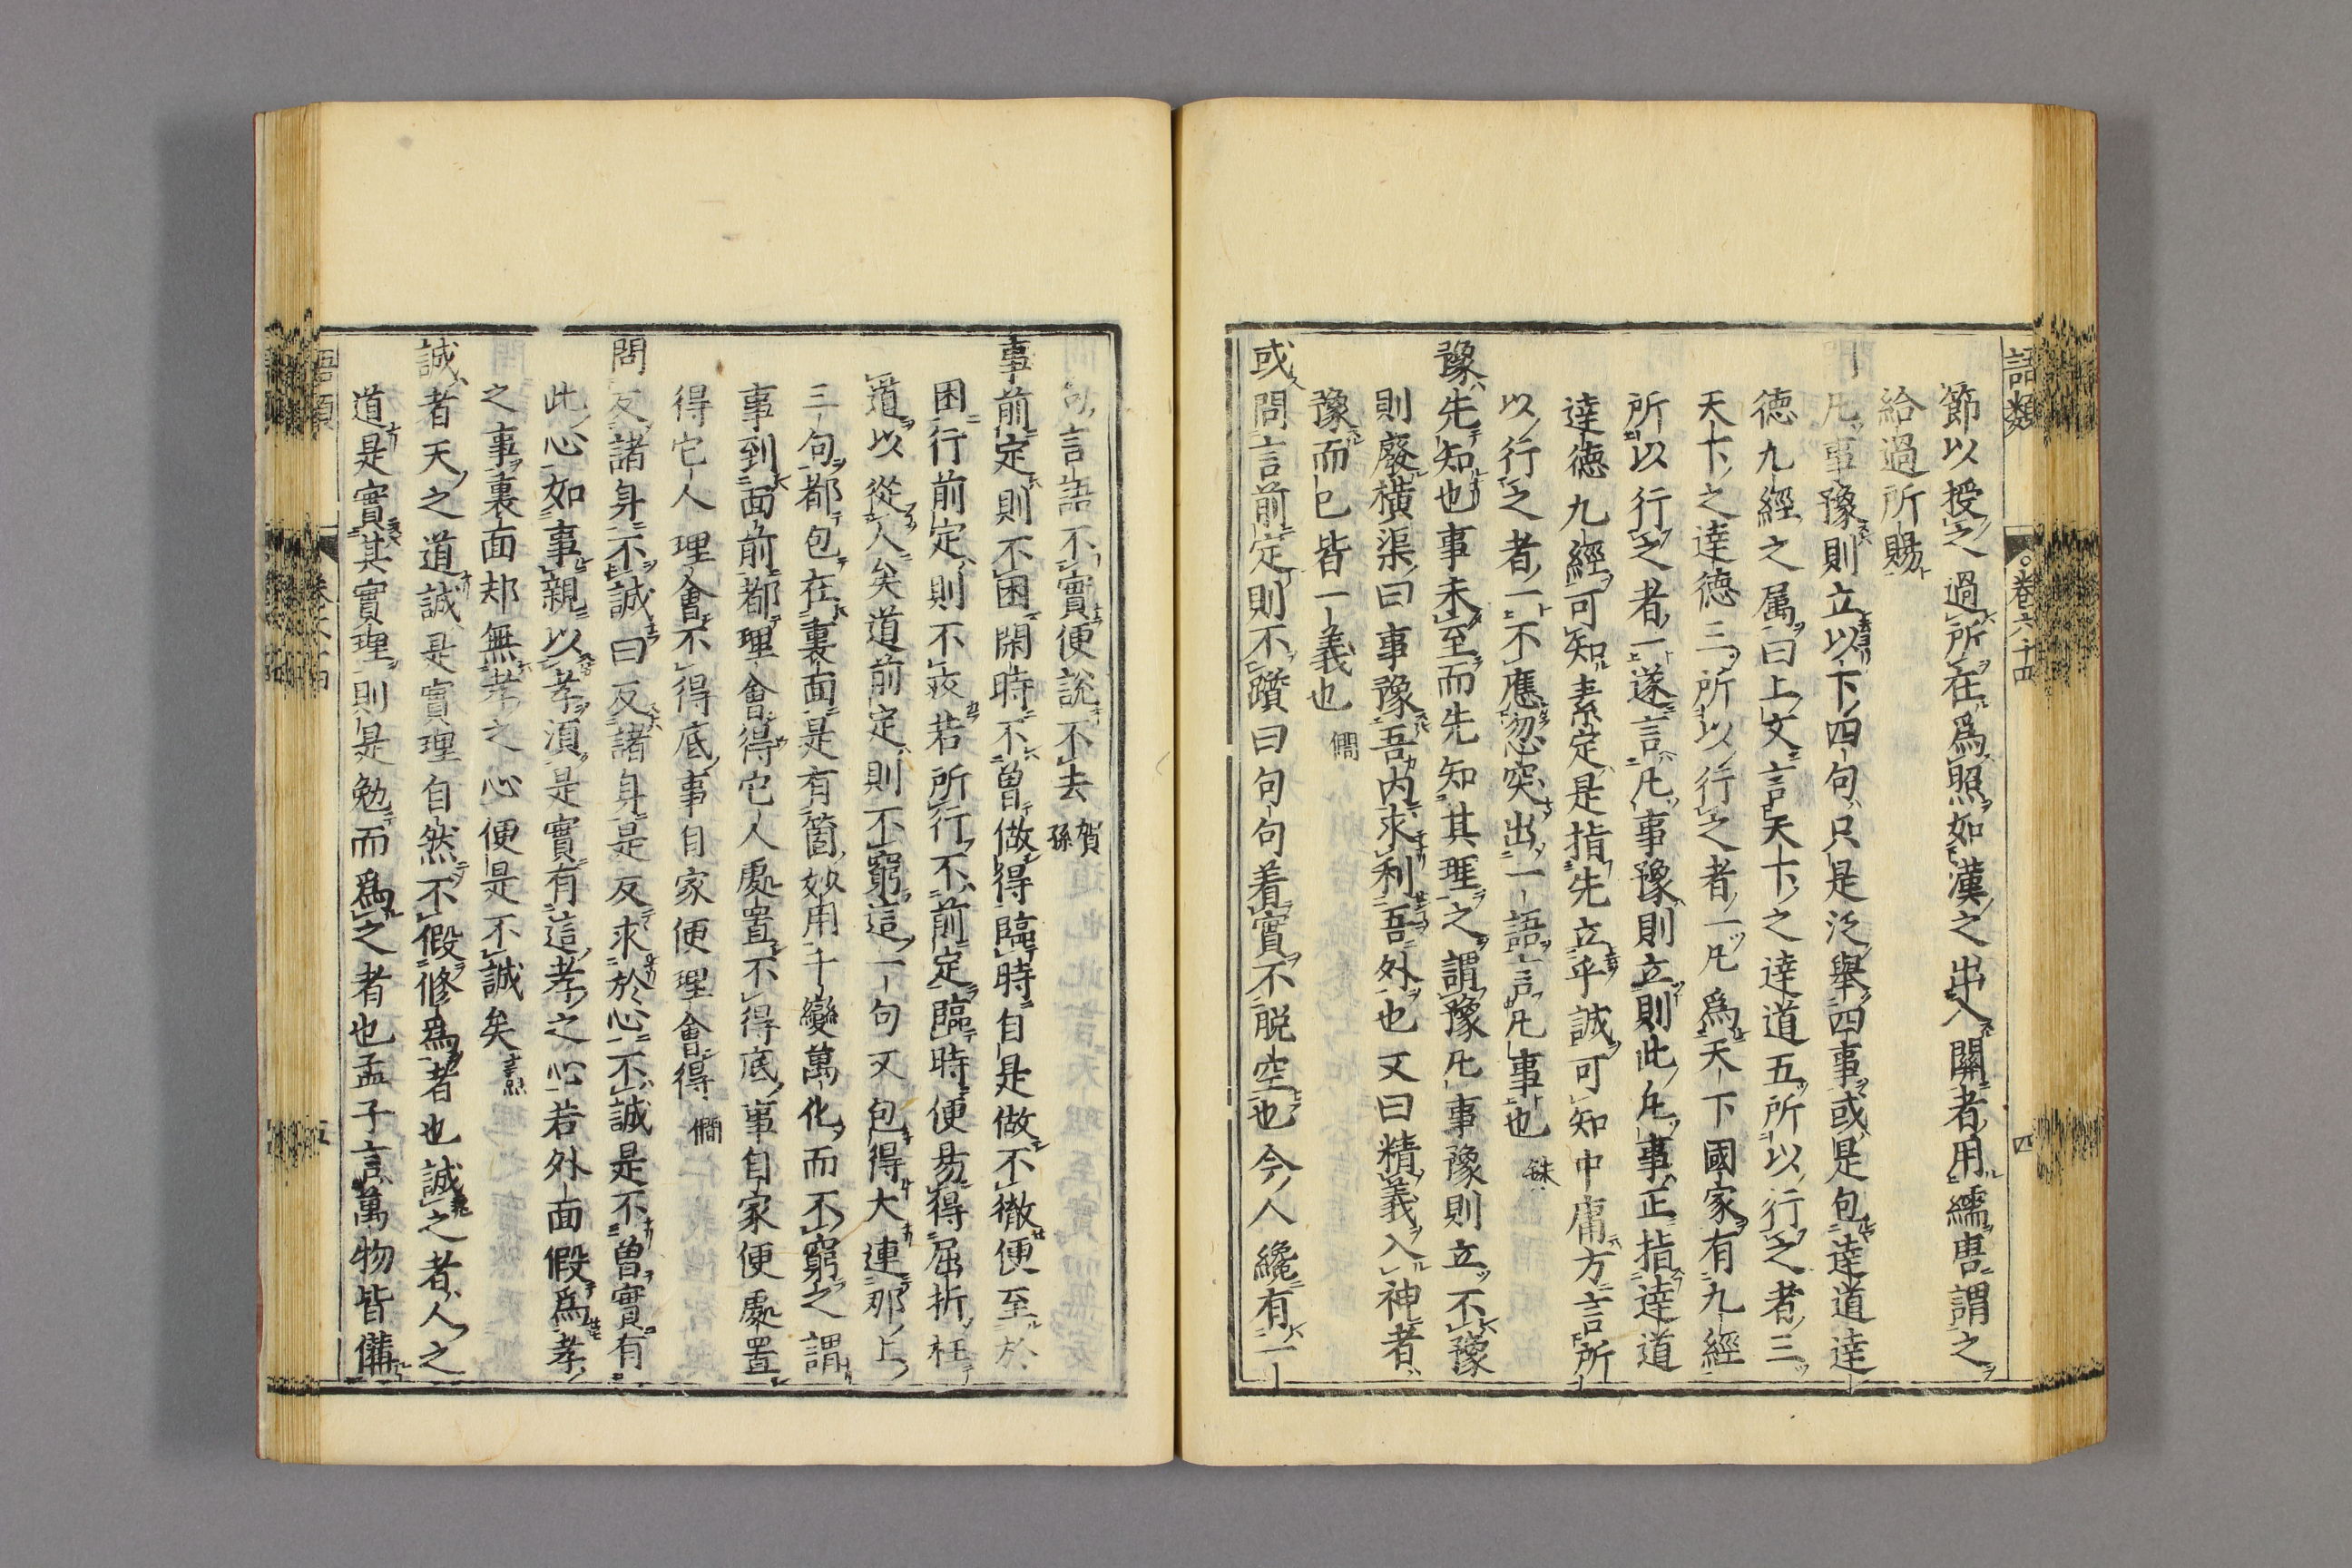 語類
卷六十四
四
節以授之過所在爲照如漢之出入關者用繻唐謂之
給過所賜
凡事豫則立以下四句只是泛舉四事或是包達道達
德九經之属曰上文言天下之達道五所以行之者三
天下之達德三所以行之者一凡爲天下國家有九經
所以行之者一遂言凡事豫則立則此凡事正指達道
達德九經可知素定是指先立乎誠可知中庸方言所
以行之者一不應忽突出一語言凡事也銖
豫先知也事未至而先知其理之謂豫凡事豫則立不豫
則廢橫渠曰事豫吾内求利吾外也又曰精義入神者
豫而已皆一義也僩
或問言前定則不躓曰句句着實不脱空也今人纔有一
句言語不實便說不去賀孫
事前定則不困閑時不曾做得臨時自是做不徹便至於
困行前定則不疚若所行不前定臨時便易得屈折枉
道以從人矣道前定則不窮這一句又包得大連那上
三句都包在裏面是有箇妙用千變萬化而不窮之謂
事到面前都理會得它人處置不得底事自家便處置
得它人理會不得底事自家便理會得僩
問反諸身不誠曰反諸身是反求於心不誠是不曾實有
此心如事親以孝須是實有這孝之心若外面假爲孝
之事裏面却無孝之心便是不誠矣燾
誠者天之道誠是實理自然不假修爲者也誠之者人之
道是實其實理則是勉而爲之者也孟子言萬物皆備
語類
五